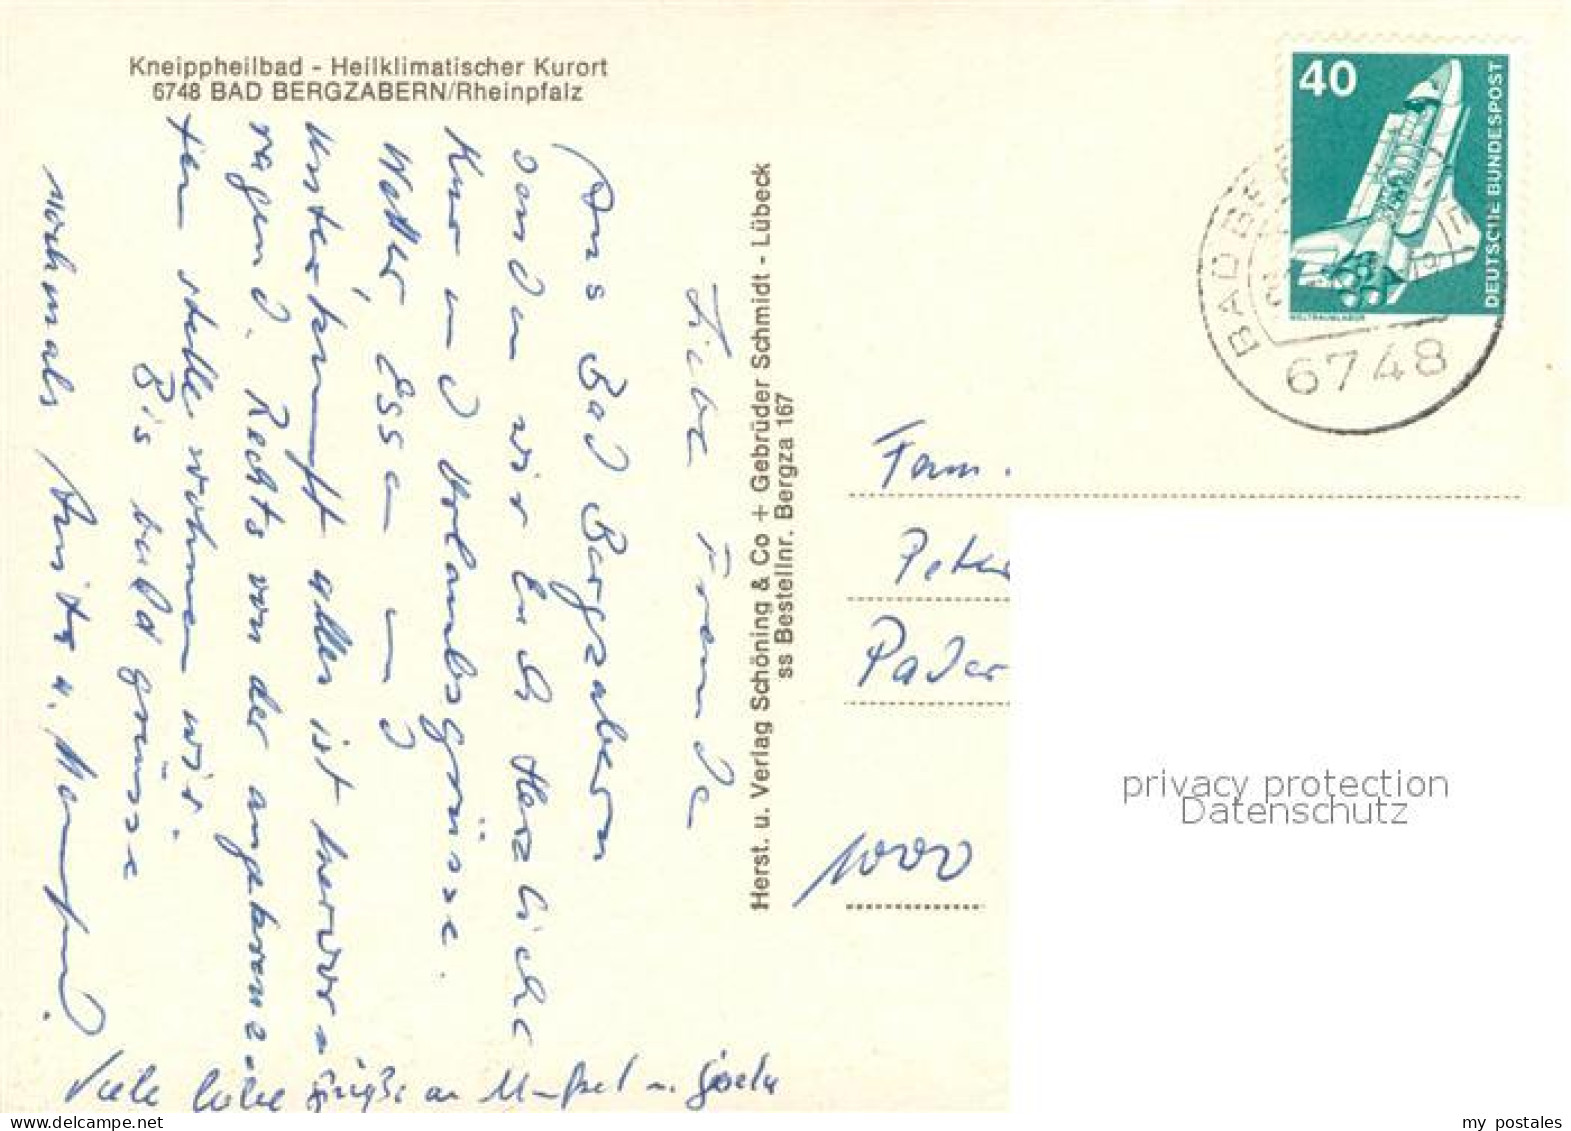 Kneippheilbad - Heilklimatischer Kurort
6748 BAD BERGZABERN/Rheinpfalz
40
DEUTSCHE BUNDESPOST
WELTRAUMLABOR
BAD BE
6748
Herst. u. Verlag Schöning & Co + Gebrüder Schmidt - Lübeck
ss Bestellnr. Bergza 167
Liebe Freunde
Aus Bad Bergzabern
senden wir Euch Herzliche
Kur und Urlaubsgrüsse.
Wetter, Essen und
Unterkunft alles ist hervor-
ragend. Rechts von der angekreuz-
ten stelle wohnen wir.
Bis bald grüsse
nochmals Anita u. Manfred.
Viele liebe Grüße an
Fam.
Peter
Pader
1000
privacy protection
Datenschutz
my postales